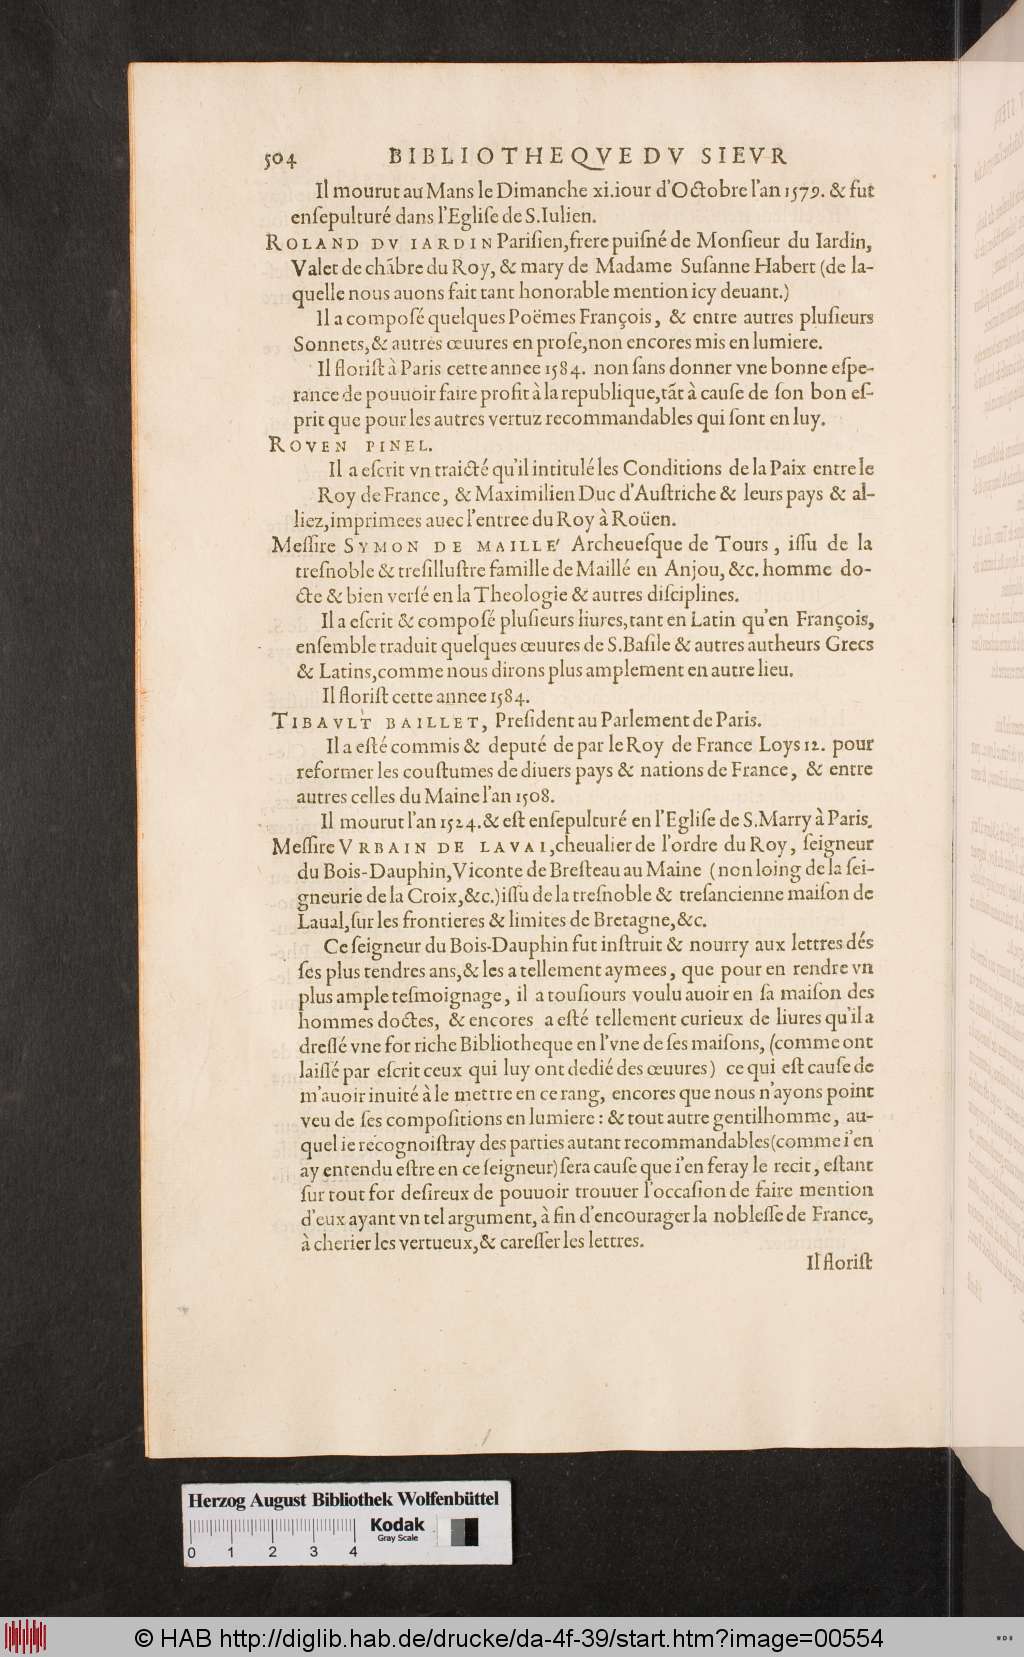 504 BIBLIOTHEQVE DV SIEVR
Il mourut au Mans le Dimanche xi. iour d'Octobre l'an 1579. & fut
enſepulturé dans l'Egliſe de S. Iulien.
ROLAND DV IARDIN Pariſien, frere puiſné de Monſieur du Iardin,
Valet de chãbre du Roy, & mary de Madame Suſanne Habert (de la-
quelle nous auons fait tant honorable mention icy deuant.)
Il a compoſé quelques Poëmes François, & entre autres pluſieurs
Sonnets, & autres œuures en proſe, non encores mis en lumiere.
Il floriſt à Paris cette annee 1584. non ſans donner vne bonne eſpe-
rance de pouuoir faire profit à la republique, tãt à cauſe de ſon bon eſ-
prit que pour les autres vertuz recommandables qui ſont en luy.
ROVEN PINEL.
Il a eſcrit vn traicté qu'il intitulé les Conditions de la Paix entre le
Roy de France, & Maximilien Duc d'Auſtriche & leurs pays & al-
liez, imprimees auec l'entree du Roy à Roüen.
Meſſire SYMON DE MAILLE' Archeueſque de Tours, iſſu de la
treſnoble & treſilluſtre famille de Maillé en Anjou, &c. homme do-
cte & bien verſé en la Theologie & autres diſciplines.
Il a eſcrit & compoſé pluſieurs liures, tant en Latin qu'en François,
enſemble traduit quelques œuures de S. Baſile & autres autheurs Grecs
& Latins, comme nous dirons plus amplement en autre lieu.
Il floriſt cette annee 1584.
TIBAVLT BAILLET, Preſident au Parlement de Paris.
Il a eſté commis & deputé de par le Roy de France Loys 12. pour
reformer les couſtumes de diuers pays & nations de France, & entre
autres celles du Maine l'an 1508.
Il mourut l'an 1524. & eſt enſepulturé en l'Egliſe de S. Marry à Paris.
Meſſire VRBAIN DE LAVAI, cheualier de l'ordre du Roy, ſeigneur
du Bois-Dauphin, Viconte de Breſteau au Maine (non loing de la ſei-
gneurie de la Croix, &c.) iſſu de la treſnoble & treſancienne maiſon de
Laual, ſur les frontieres & limites de Bretagne, &c.
Ce ſeigneur du Bois-Dauphin fut inſtruit & nourry aux lettres dés
ſes plus tendres ans, & les a tellement aymees, que pour en rendre vn
plus ample teſmoignage, il a touſiours voulu auoir en ſa maiſon des
hommes doctes, & encores a eſté tellement curieux de liures qu'il a
dreſſé vne for riche Bibliotheque en l'vne de ſes maiſons, (comme ont
laiſſé par eſcrit ceux qui luy ont dedié des œuures) ce qui eſt cauſe de
m'auoir inuité à le mettre en ce rang, encores que nous n'ayons point
veu de ſes compoſitions en lumiere: & tout autre gentilhomme, au-
quel ie recognoiſtray des parties autant recommandables (comme i'en
ay entendu eſtre en ce ſeigneur) ſera cauſe que i'en feray le recit, eſtant
ſur tout for deſireux de pouuoir trouuer l'occaſion de faire mention
d'eux ayant vn tel argument, à fin d'encourager la nobleſſe de France,
à cherier les vertueux, & careſſer les lettres.
Il floriſt
Herzog August Bibliothek Wolfenbüttel
0 1 2 3 4
Kodak
Gray Scale
© HAB http://diglib.hab.de/drucke/da-4f-39/start.htm?image=00554